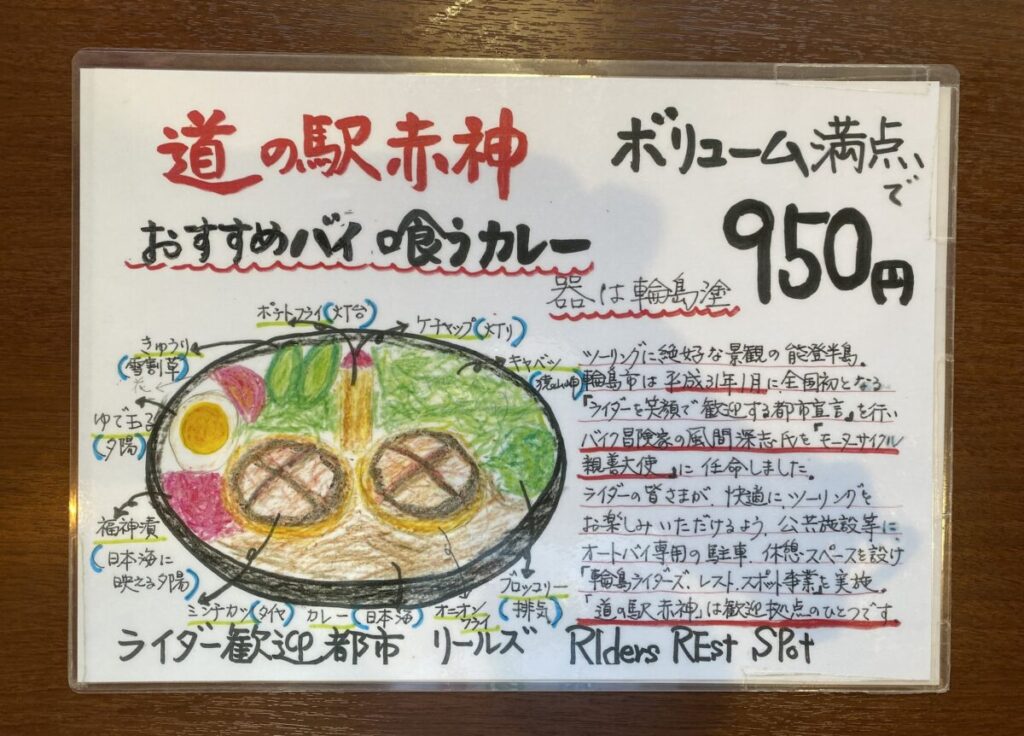 道の駅赤神
ボリューム満点、
で
950円
おすすめバイ喰うカレー
器は輪島塗
ポテトフライ(灯台)
ケチャップ(灯り)
きゅうり
(雪割草)
キャベツ
ゆで玉子
(夕陽)
福神漬
(日本海に
映える夕陽)
ミンチカツ(タイヤ)
カレー(日本海)
オニオン
フライ
ブロッコリー
(排気)
ツーリングに絶好な景観の能登半島。
輪島市は平成31年1月に全国初となる
『ライダーを笑顔で歓迎する都市宣言』を行い
バイク冒険家の風間深志氏を『モーターサイクル
親善大使』に任命しました。
ライダーの皆さまが、快適にツーリングを
お楽しみいただけるよう、公共施設等に
オートバイ専用の駐車、休憩スペースを設け
「輪島ライダーズ、レスト、スポット事業」を実施。
「道の駅赤神」は歓迎拠点のひとつです。
ライダー歓迎都市 リールズ RIders REst SPot